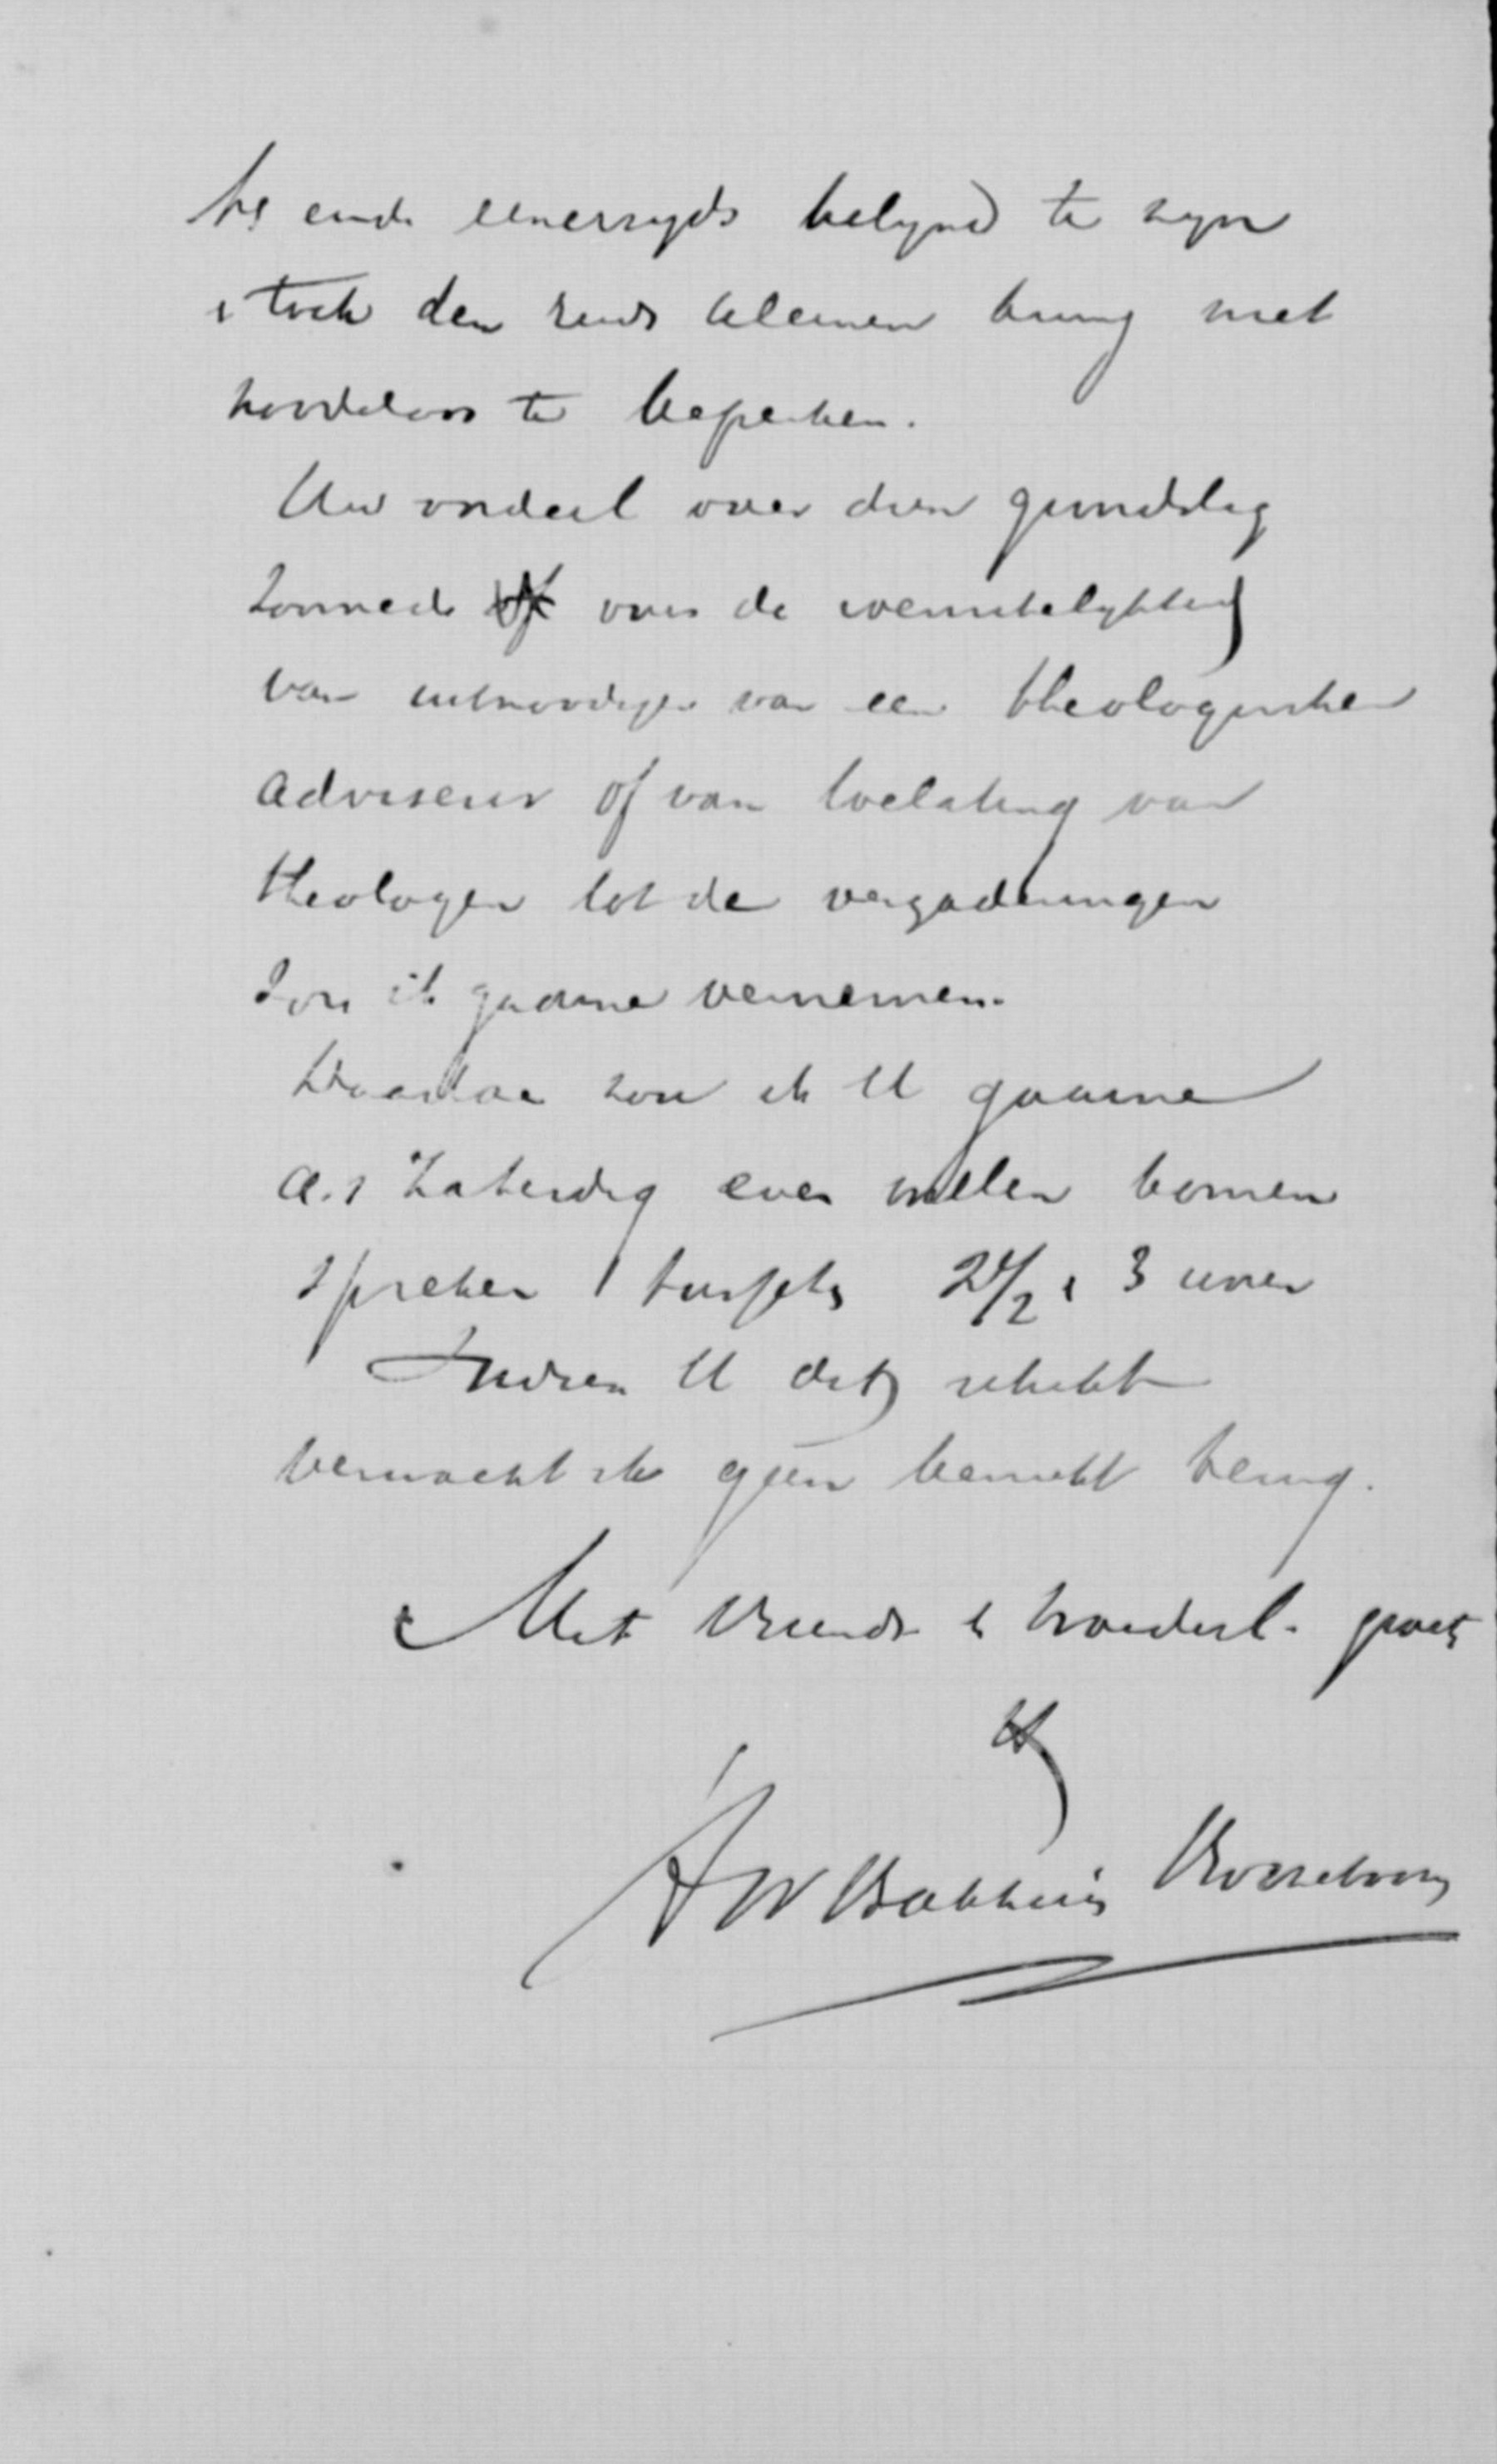 te eind eenerzyds belynd te zyn
& toch den reeds kleinen kring niet
noodeloos te beperken.
Uw oordeel over dien grondslag
zoomede over de wenschelykheid
van uitnoodigen van een theologischen
adviseur of van toelating van
theologen tot de vergaderingen
zou ik gaarne vernemen.
Daartoe zou ik U gaarne
a.s Zaterdag even willen komen
spreken tusschen 2 1/2 & 3 uur
Indien U dat schikt
verwacht ik geen bericht terug.
Met vriendl & broederl. groet
AW Bakhuis Roozeboom